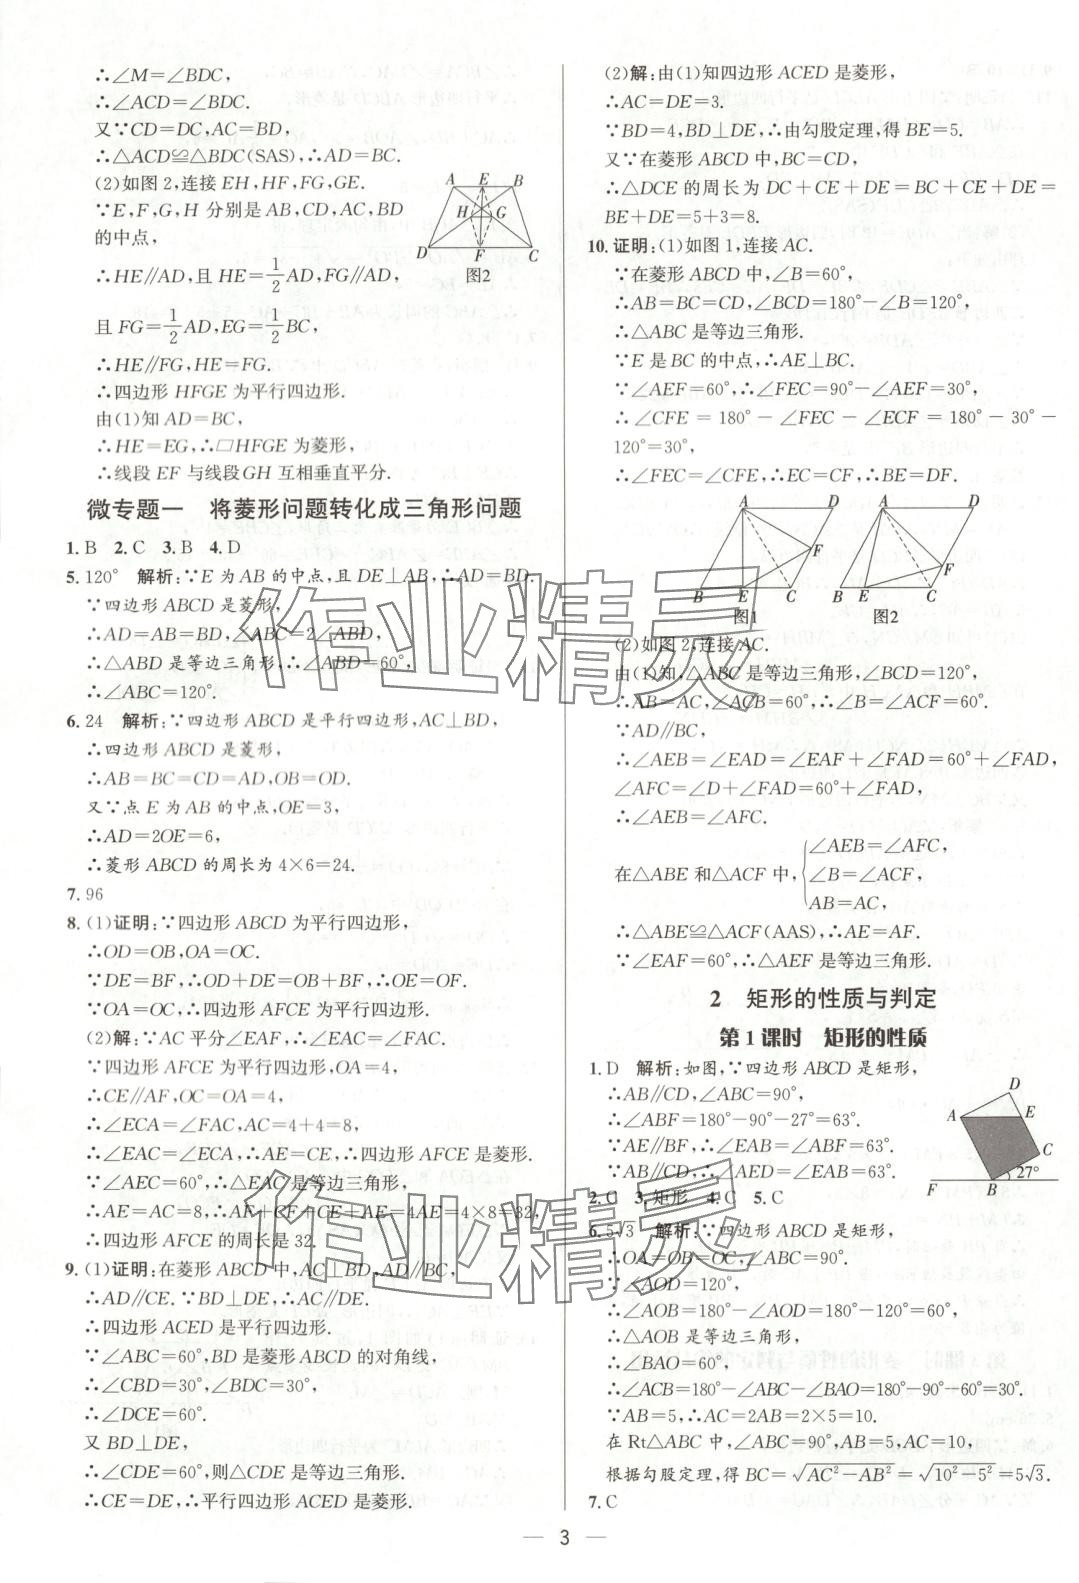 ∴∠M=∠BDC,
∴∠ACD=∠BDC.
又∵CD=DC,AC=BD,
∴△ACD≌△BDC(SAS),∴AD=BC.
(2)如图2,连接EH,HF,FG,GE.
∵E,F,G,H 分别是AB,CD,AC,BD
的中点,
∴HE∥AD,且 HE=1/2AD,FG∥AD,
且FG=1/2AD,EG=1/2BC,
∴HE∥FG,HE=FG.
∴四边形 HFGE 为平行四边形.
由(1)知AD=BC,
∴HE=EG,∴□HFGE 为菱形,
∴线段 EF 与线段GH 互相垂直平分.
A E B
H G
D F C
图2
微专题一 将菱形问题转化成三角形问题
1.B 2.C 3.B 4.D
5.120° 解析:∵E 为 AB 的中点,且 DE⊥AB,∴AD=BD.
∵四边形 ABCD 是菱形,
∴AD=AB=BD,∠ABC=2∠ABD,
∴△ABD 是等边三角形,∴∠ABD=60°,
∴∠ABC=120°.
6.24 解析:∵四边形 ABCD 是平行四边形,AC⊥BD,
∴四边形 ABCD 是菱形,
∴AB=BC=CD=AD,OB=OD.
又∵点 E 为 AB 的中点,OE=3,
∴AD=2OE=6,
∴菱形 ABCD 的周长为 4×6=24.
7.96
8.(1)证明:∵四边形 ABCD 为平行四边形,
∴OD=OB,OA=OC.
∵DE=BF,∴OD+DE=OB+BF,∴OE=OF.
∵OA=OC,∴四边形 AFCE 为平行四边形.
(2)解:∵AC 平分∠EAF,∴∠EAC=∠FAC.
∵四边形 AFCE 为平行四边形,OA=4,
∴CE∥AF,OC=OA=4,
∴∠ECA=∠FAC,AC=4+4=8,
∴∠EAC=∠ECA,∴AE=CE,∴四边形 AFCE 是菱形.
∵∠AEC=60°,∴△EAC 是等边三角形,
∴AE=AC=8,∴AF+CF+CE+AE=4AE=4×8=32,
∴四边形 AFCE 的周长是 32.
9.(1)证明:在菱形 ABCD 中,AC⊥BD,AD∥BC,
∴AD∥CE.∵BD⊥DE,∴AC∥DE.
∴四边形 ACED 是平行四边形.
∵∠ABC=60°,BD 是菱形 ABCD 的对角线,
∴∠CBD=30°,∠BDC=30°,
∴∠DCE=60°.
又 BD⊥DE,
∴∠CDE=60°,则△CDE 是等边三角形,
∴CE=DE,∴平行四边形 ACED 是菱形.
(2)解:由(1)知四边形 ACED 是菱形,
∴AC=DE=3.
∵BD=4,BD⊥DE,∴由勾股定理,得 BE=5.
又∵在菱形 ABCD 中,BC=CD,
∴△DCE 的周长为 DC+CE+DE=BC+CE+DE=
BE+DE=5+3=8.
10.证明:(1)如图 1,连接 AC.
∵在菱形 ABCD 中,∠B=60°,
∴AB=BC=CD,∠BCD=180°-∠B=120°,
∴△ABC 是等边三角形.
∵E 是 BC 的中点,∴AE⊥BC.
∵∠AEF=60°,∴∠FEC=90°-∠AEF=30°,
∴∠CFE=180°-∠FEC-∠ECF=180°-30°-
120°=30°,
∴∠FEC=∠CFE,∴EC=CF,∴BE=DF.
A D
F
B E C
图1
A D
F
B E C
图2
(2)如图 2,连接 AC.
由(1)知,△ABC 是等边三角形,∠BCD=120°,
∴AB=AC,∠ACB=60°,∴∠B=∠ACF=60°.
∵AD∥BC,
∴∠AEB=∠EAD=∠EAF+∠FAD=60°+∠FAD,
∠AFC=∠D+∠FAD=60°+∠FAD,
∴∠AEB=∠AFC.
在△ABE 和△ACF 中,{∠AEB=∠AFC,
∠B=∠ACF,
AB=AC,
∴△ABE≌△ACF(AAS),∴AE=AF.
∵∠EAF=60°,∴△AEF 是等边三角形.
2 矩形的性质与判定
第1课时 矩形的性质
1.D 解析:如图,∵四边形 ABCD 是矩形,
∴AB∥CD,∠ABC=90°,
∴∠ABF=180°-90°-27°=63°.
∵AE∥BF,∴∠EAB=∠ABF=63°.
∵AB∥CD,∴∠AED=∠EAB=63°.
D
A E
C
27°
F B
2.C 3.矩形 4.C 5.C
6.5√3 解析:∵四边形 ABCD 是矩形,
∴OA=OB=OC,∠ABC=90°.
∵∠AOD=120°,
∴∠AOB=180°-∠AOD=180°-120°=60°,
∴△AOB 是等边三角形,
∴∠BAO=60°,
∴∠ACB=180°-∠ABC-∠BAO=180°-90°-60°=30°.
∵AB=5,∴AC=2AB=2×5=10.
在 Rt△ABC 中,∠ABC=90°,AB=5,AC=10,
根据勾股定理,得 BC=√AC²-AB²=√10²-5²=5√3.
7.C
— 3 —
作业精灵
作业精灵